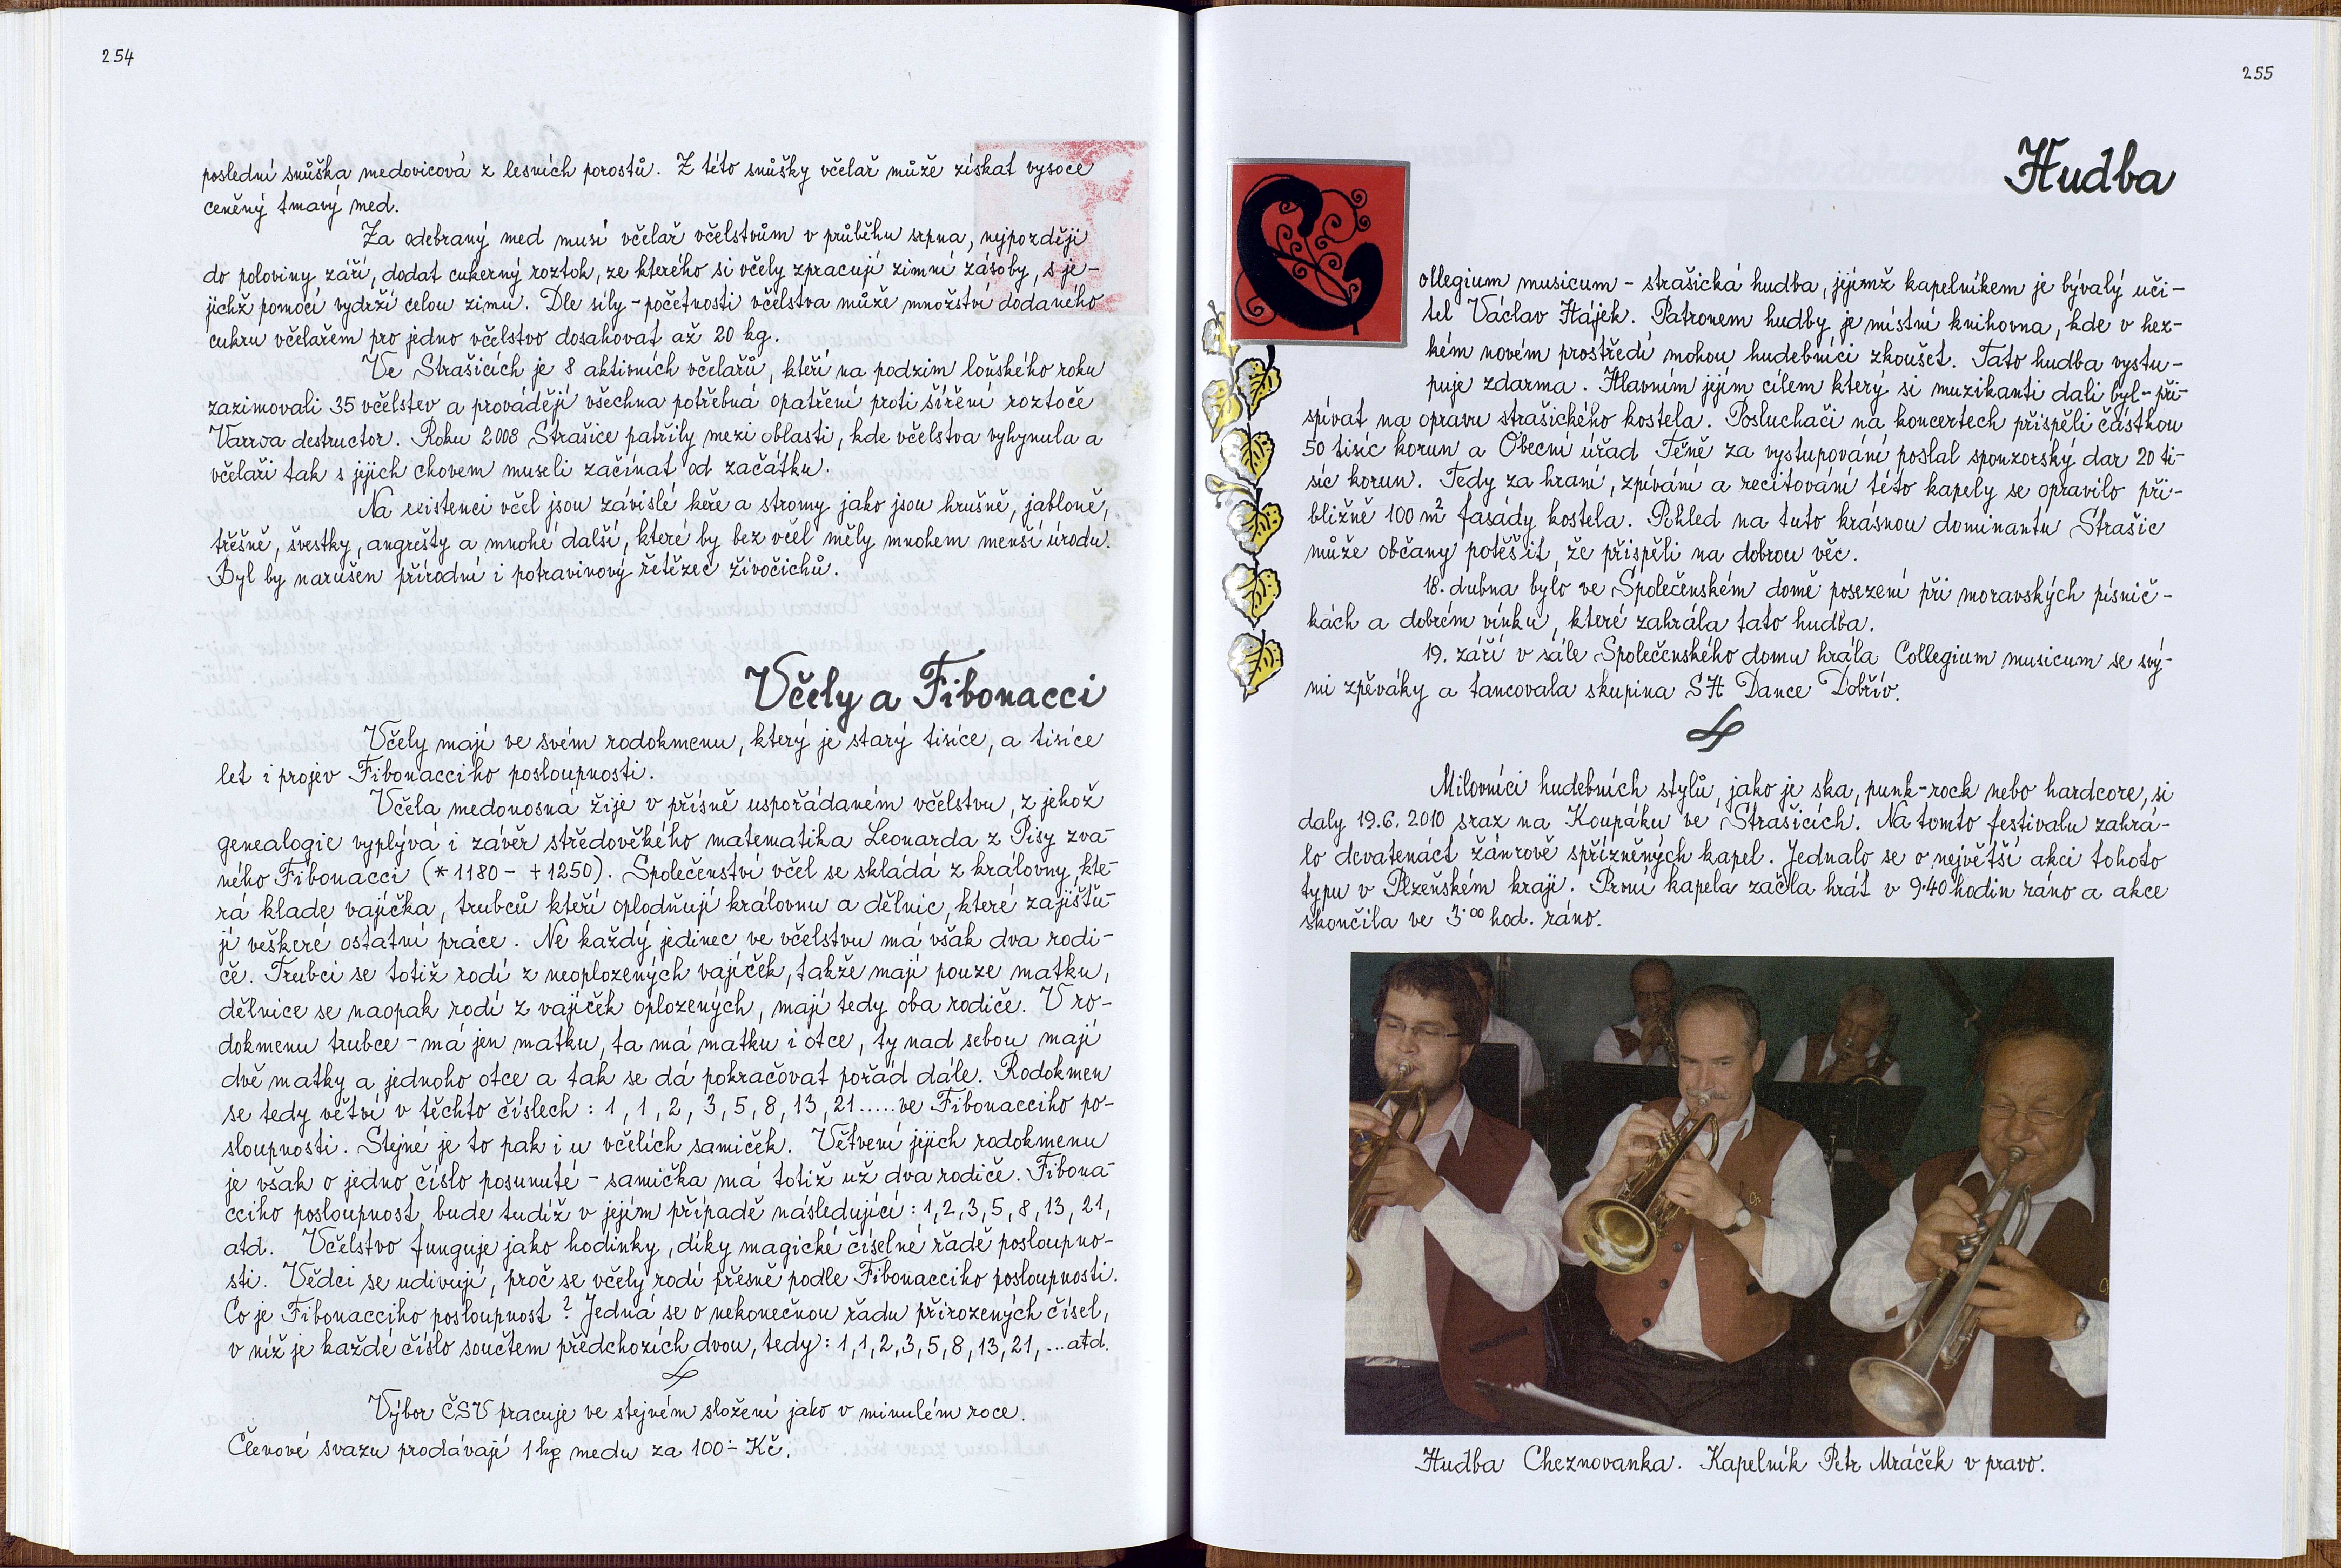 254
poslední snůška medovicová z lesních porostů. Z této snůšky včelař může získat vysoce
ceněný tmavý med.
Za odebraný med musí včelař včelstvům v průběhu srpna, nejpozději
do poloviny září, dodat cukerný roztok, ze kterého si včely zpracují zimní zásoby, s je-
jichž pomocí vydrží celou zimu. Dle síly - početnosti včelstva může množství dodaného
cukru včelařem pro jedno včelstvo dosahovat až 20 kg.
Ve Strašicích je 8 aktivních včelařů, kteří na podzim loňského roku
zazimovali 35 včelstev a provádějí všechna potřebná opatření proti šíření roztoče
Varroa destructor. Roku 2008 Strašice patřily mezi oblasti, kde včelstva vyhynula a
včelaři tak s jejich chovem museli začínat od začátku.
Na existenci včel jsou závislé keře a stromy jako jsou hrušně, jabloně,
třešně, švestky, angrešty a mnohé další, které by bez včel měly mnohem menší úrodu.
Byl by narušen přírodní i potravinový řetězec živočichů.
Včely a Fibonacci
Včely mají ve svém rodokmenu, který je starý tisíce, a tisíce
let i projev Fibonacciho posloupnosti.
Včela medonosná žije v přísně uspořádaném včelstvu, z jehož
genealogie vyplývá i závěr středověkého matematika Leonarda z Pisy zva-
ného Fibonacci (*1180 - +1250). Společenství včel se skládá z královny, kte-
rá klade vajíčka, trubců kteří oplodňují královnu a dělnic, které zajišťu-
jí veškeré ostatní práce. Ne každý jedinec ve včelstvu má však dva rodi-
če. Trubci se totiž rodí z neoplozených vajíček, takže mají pouze matku,
dělnice se naopak rodí z vajíček oplozených, mají tedy oba rodiče. V ro-
dokmenu trubce - má jen matku, ta má matku i otce, ty nad sebou mají
dvě matky a jednoho otce a tak se dá pokračovat pořád dále. Rodokmen
se tedy větví v těchto číslech : 1, 1, 2, 3, 5, 8, 13, 21..... ve Fibonacciho po-
sloupnosti. Stejné je to pak i u včelích samiček. Větvení jejich rodokmenu
je však o jedno číslo posunuté - samička má totiž už dva rodiče. Fibona-
cciho posloupnost bude tudíž v jejím případě následující : 1, 2, 3, 5, 8, 13, 21,
atd. Včelstvo funguje jako hodinky, díky magické číselné řadě posloupno-
sti. Vědci se udivují, proč se včely rodí přesně podle Fibonacciho posloupnosti.
Co je Fibonacciho posloupnost ? Jedná se o nekonečnou řadu přirozených čísel,
v níž je každé číslo součtem předchozích dvou, tedy : 1, 1, 2, 3, 5, 8, 13, 21, ... atd.
Výbor ČSV pracuje ve stejném složení jako v minulém roce.
Členové svazu prodávají 1 kg medu za 100.- Kč.
255
Hudba
Collegium musicum - strašická hudba, jejímž kapelníkem je bývalý uči-
tel Václav Hájek. Patronem hudby je místní knihovna, kde v hez-
kém novém prostředí mohou hudebníci zkoušet. Tato hudba vystu-
puje zdarma. Hlavním jejím cílem který si muzikanti dali byl - při-
spívat na opravu strašického kostela. Posluchači na koncertech přispěli částkou
50 tisíc korun a Obecní úřad Těně za vystupování poslal sponzorský dar 20 ti-
síc korun. Tedy za hraní, zpívání a recitování této kapely se opravilo při-
bližně 100 m² fasády kostela. Pohled na tuto krásnou dominantu Strašic
může občany potěšit, že přispěli na dobrou věc.
18. dubna bylo ve Společenském domě posezení při moravských písnič-
kách a dobrém vínku, které zahrála tato hudba.
19. září v sále Společenského domu hrála Collegium musicum se svý-
mi zpěváky a tancovala skupina SH Dance Dobřív.
Milovníci hudebních stylů, jako je ska, punk-rock nebo hardcore, si
daly 19.6. 2010 sraz na Koupáku ve Strašicích. Na tomto festivalu zahrá-
lo devatenáct žánrově spřízněných kapel. Jednalo se o největší akci tohoto
typu v Plzeňském kraji. První kapela začla hrát v 9.40 hodin ráno a akce
skončila ve 3.00 hod. ráno.
Hudba Cheznovanka. Kapelník Petr Mráček v pravo.